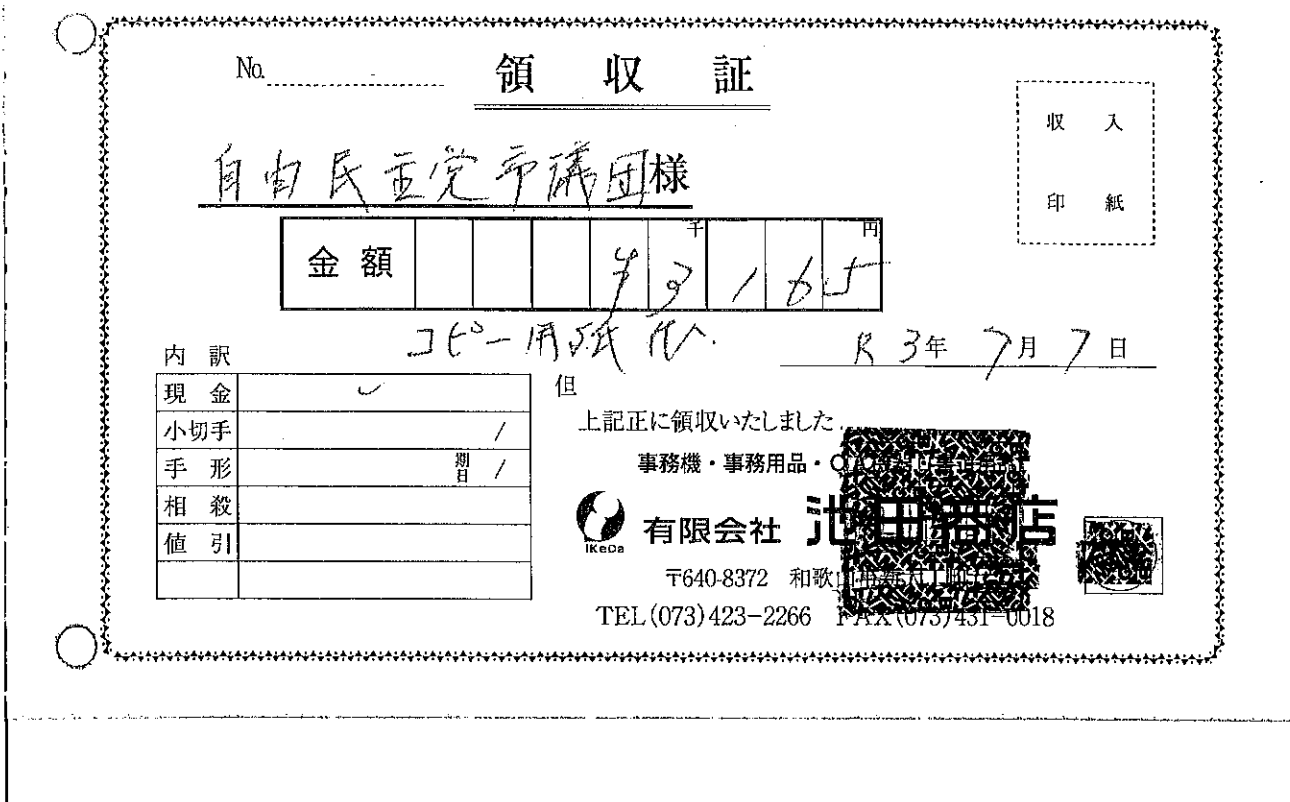 No.
領収証
収入
印紙
自由民主党市議団様
金額 千 円
¥3165
コピー用紙代.
R3年7月7日
内訳
但
現金 ✓
小切手 /
手形 期日 /
相殺
値引
上記正に領収いたしました.
事務機・事務用品・
IKeDa
有限会社 池田商店
〒640-8372 和歌山市新
TEL(073)423-2266 FAX(073)431-0018